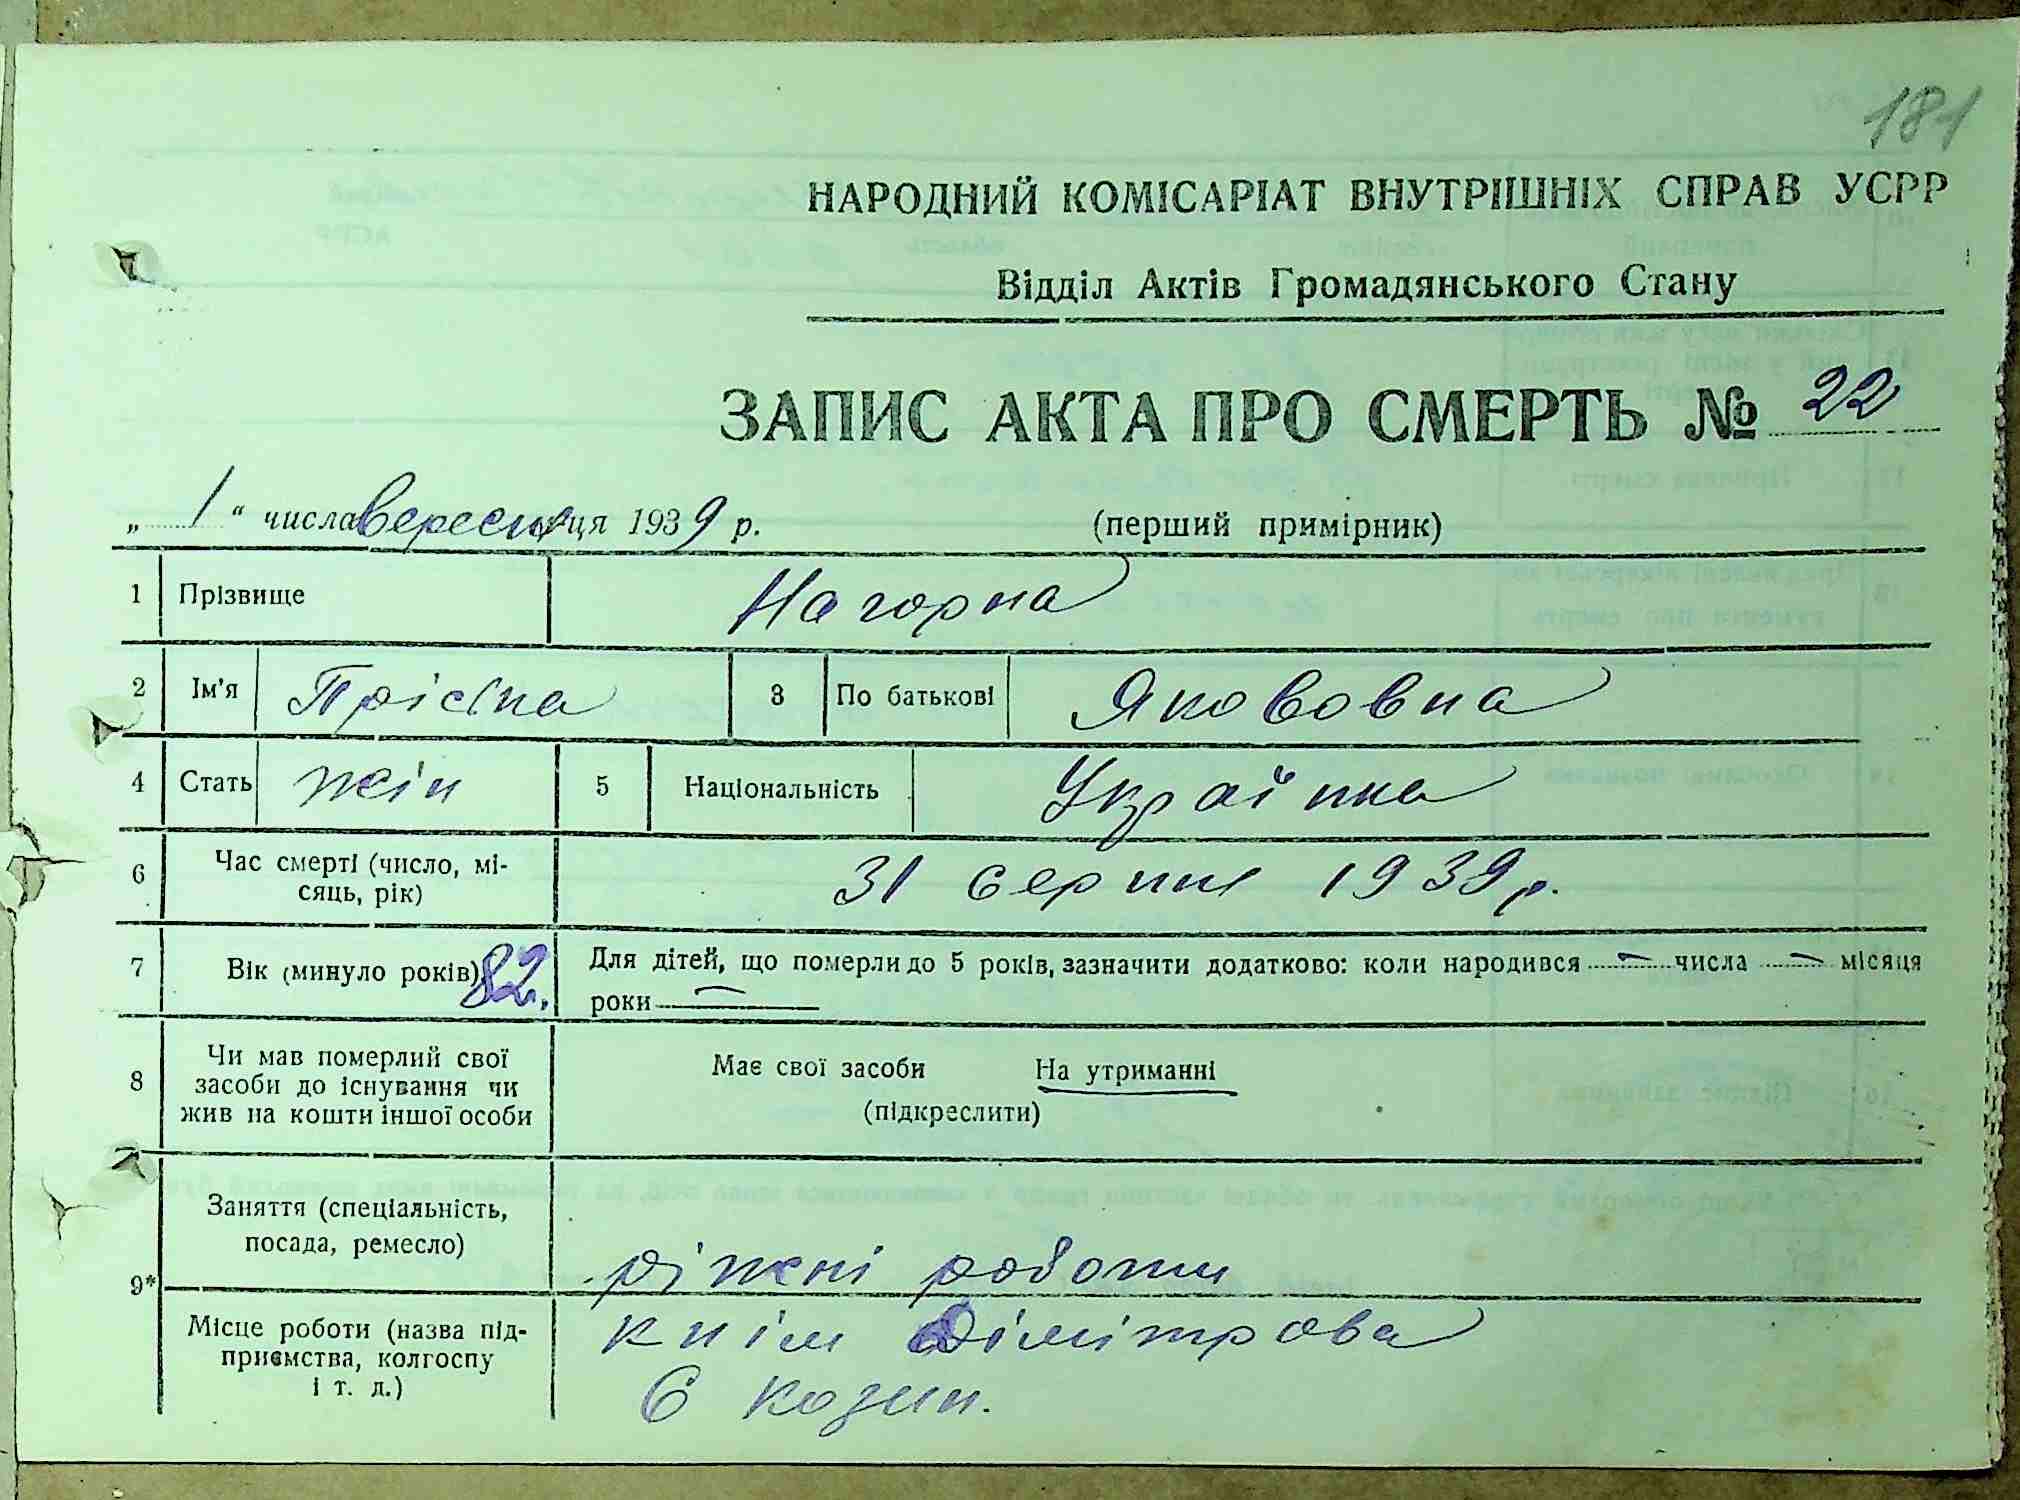 181
НАРОДНИЙ КОМІСАРІАТ ВНУТРІШНІХ СПРАВ УСРР
Відділ Актів Громадянського Стану
ЗАПИС АКТА ПРО СМЕРТЬ № 22
„ 1 “ числа вересня ця 1939 р. (перший примірник)
1 Прізвище Нагорна
2 Ім'я Прісіна 3 По батькові Якововна
4 Стать жін 5 Національність Українка
6 Час смерті (число, мі-
сяць, рік) 31 серпня 1939 р.
7 Вік (минуло років) 82. Для дітей, що померли до 5 років, зазначити додатково: коли народився — числа — місяця
роки —
8 Чи мав померлий свої
засоби до існування чи
жив на кошти іншої особи
Має свої засоби На утриманні
(підкреслити)
9* Заняття (спеціальність,
посада, ремесло) ріжні роботи
Місце роботи (назва під-
приємства, колгоспу
і т. д.)
к нім Дімітрова
с Козин.